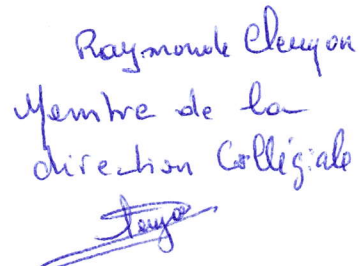 Raymonde Cleuyou
Membre de la
direction Collégiale